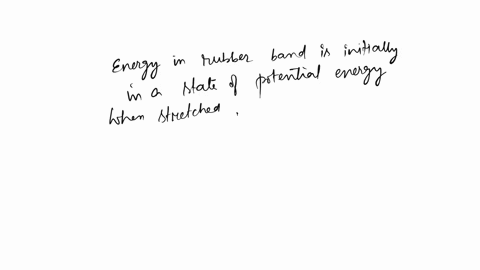 Energy in rubber band is initially
in a state of potential energy
when stretched .